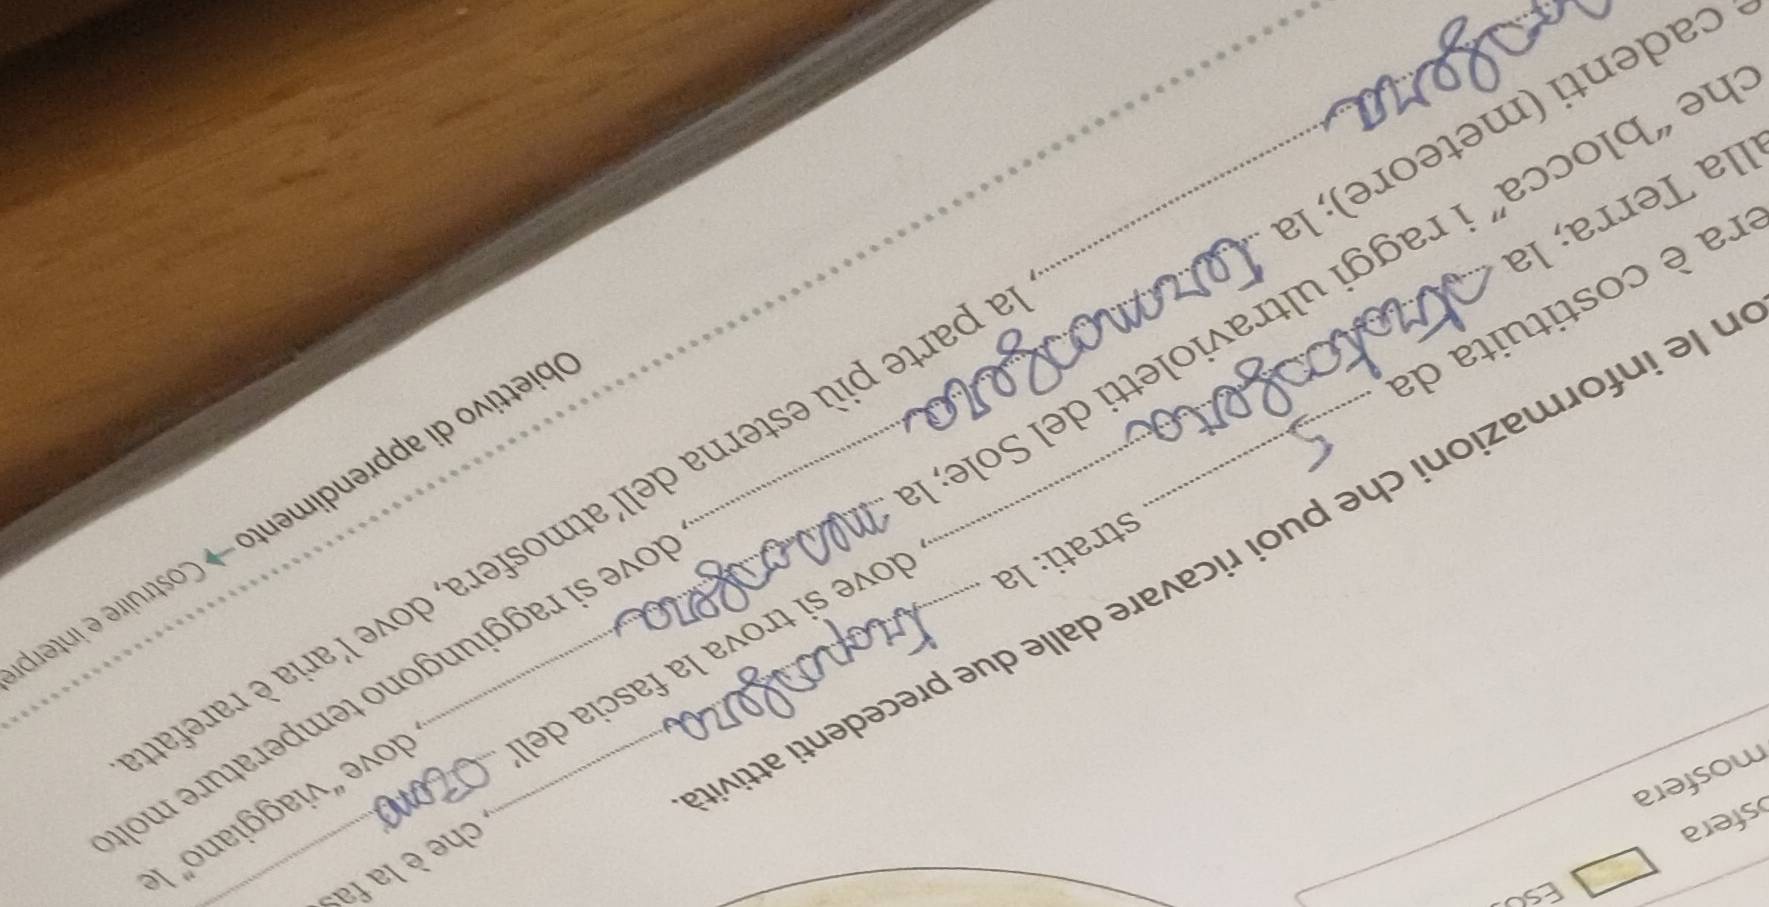 Eso
osfera
mosfera
on le informazioni che puoi ricavare dalle due precedenti attività.
era è costituita da 5 strati: la troposfera, che è la fas
alla Terra; la stratosfera, dove si trova la fascia dell' ozono
che "blocca" i raggi ultravioletti del Sole; la mesosfera, dove "viaggiano" le
e cadenti (meteore); la termosfera, dove si raggiungono temperature molto
, la parte più esterna dell'atmosfera, dove l'aria è rarefatta.
Obiettivo di apprendimento → Costruire e interpre